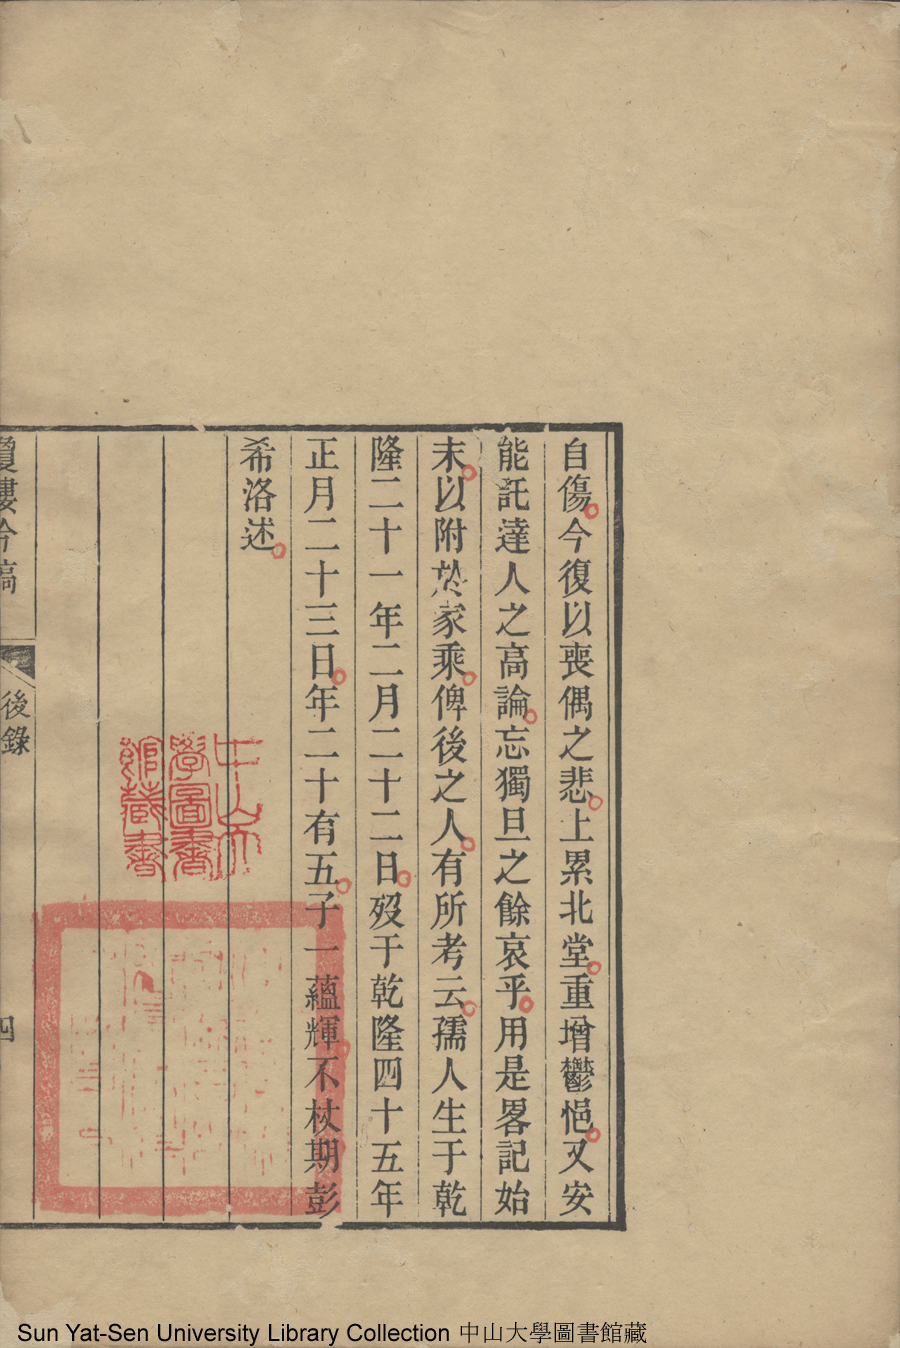 自傷今復以喪偶之悲上累北堂重增鬱悒又安
能託達人之高論忘獨旦之餘哀乎用是畧記始
末以附於家乘俾後之人有所考云孺人生于乾
隆二十一年二月二十二日歿于乾隆四十五年
正月二十三日年二十有五子一蘊輝不杖期彭
希洛述
後錄
四
中山大
學圖書
館藏書
Sun Yat-Sen University Library Collection 中山大學圖書館藏